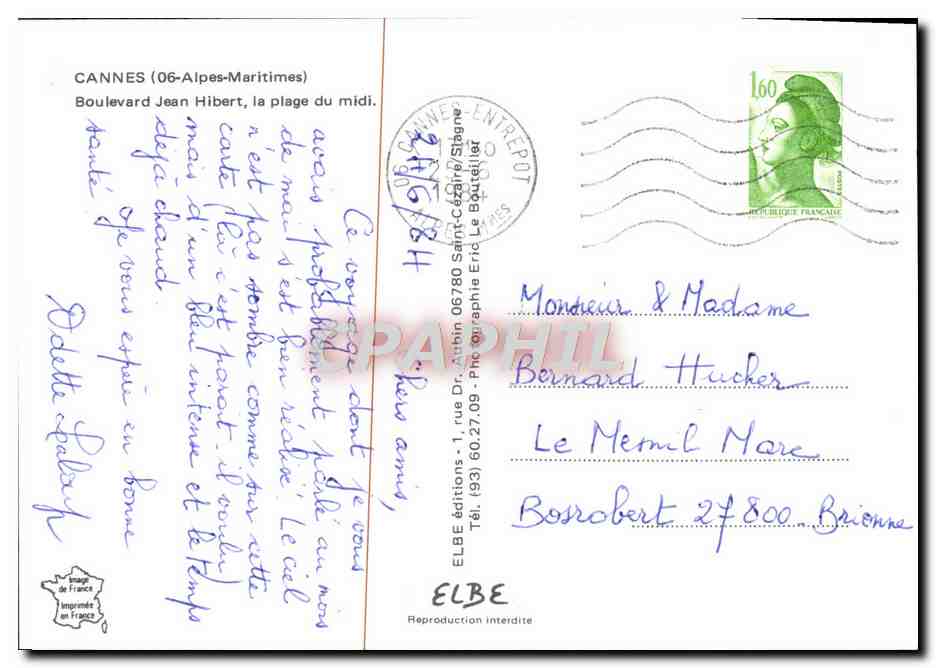 CANNES (06-Alpes-Maritimes)
Boulevard Jean Hibert, la plage du midi.
24/6/84
Chers amis,
Ce voyage dont je vous
avais probablement parlé au mois
de mai s'est bien réalisé. Le ciel
n'est pas sombre comme sur cette
carte (là c'est parait-il voulu)
mais d'un bleu intense et le temps
déjà chaud.
Je vous espère en bonne
santé.
Odette
Image
de France
Imprimée
en France
ELBE éditions - 1, rue Dr. Aubin 06780 Saint-Cézaire/Siagne
Tél. (93) 60.27.09 - Photographie Eric Le Bouteiller
ELBE
Reproduction interdite
06 CANNES-ENTREPOT
1984
1,60
REPUBLIQUE FRANÇAISE
Monsieur & Madame
Bernard Hucher
Le Mesnil Marc
Bosrobert 27800 - Brionne
CPAPHIL